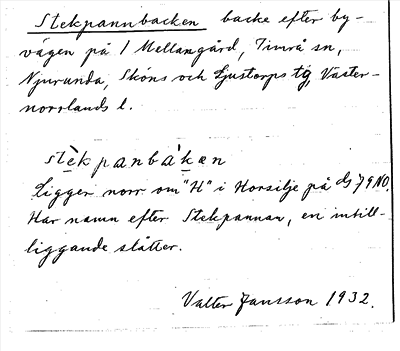 Stekpannbacken backe efter by-
vägen på 1 Mellangård, Timrå sn,
Njurunda, Sköns och Ljustorps tg, Väster-
norrlands l.
stèkpanbákæn
Ligger norr om "H" i Horsilje på dJ 79 NO.
Har namn efter Stekpannan, en intill-
liggande slåtter.
Valter Jansson 1932.